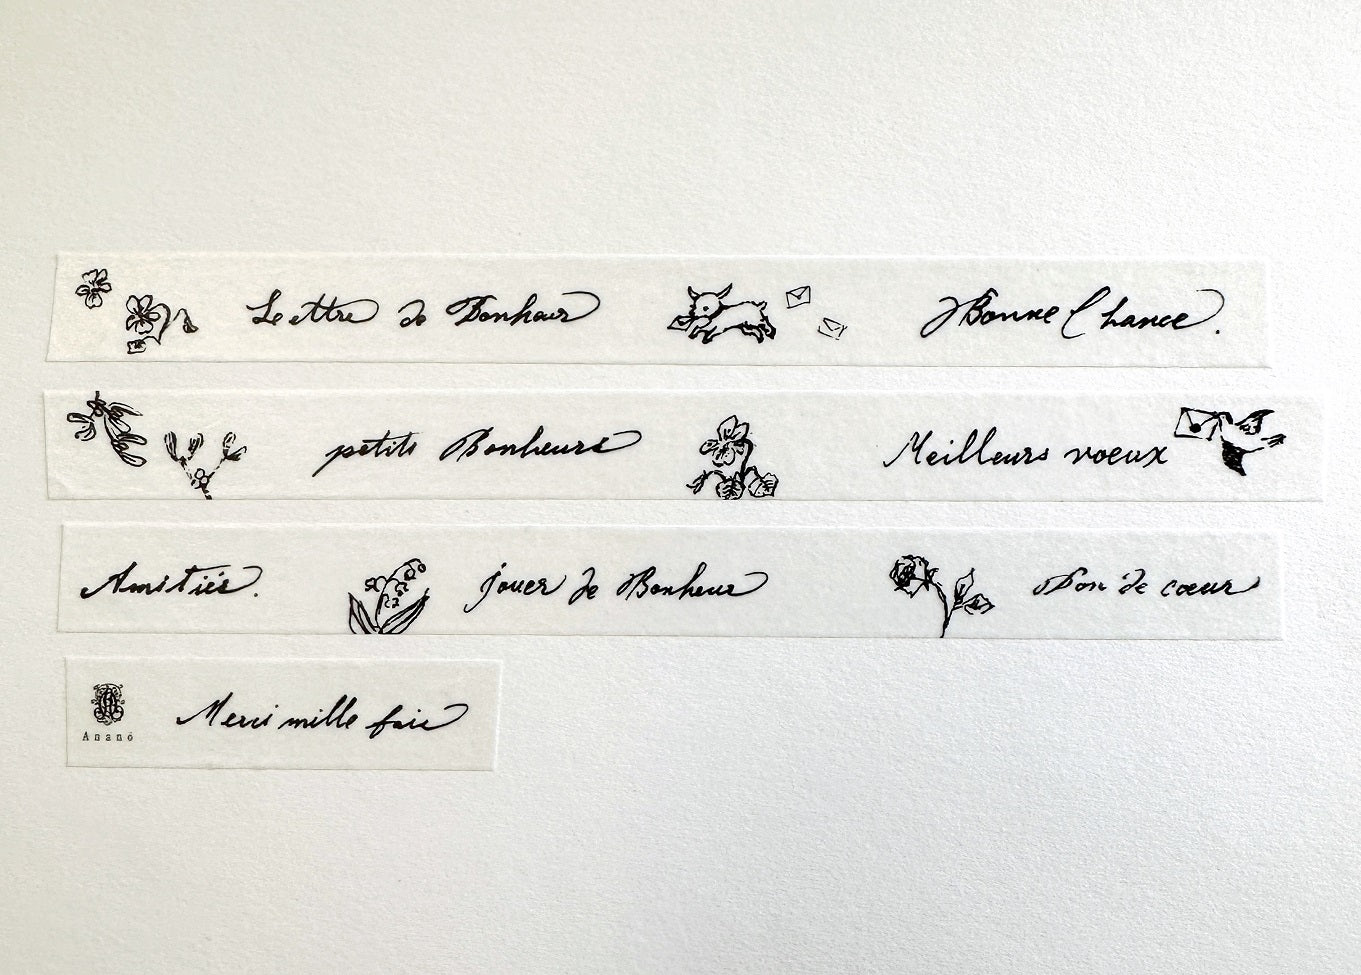 Lettre de Bonheur Bonne Chance.
petits Bonheurs Meilleurs voeux
Amitiés. jouer de Bonheur Don de cœur
Merci mille fois
Ananö